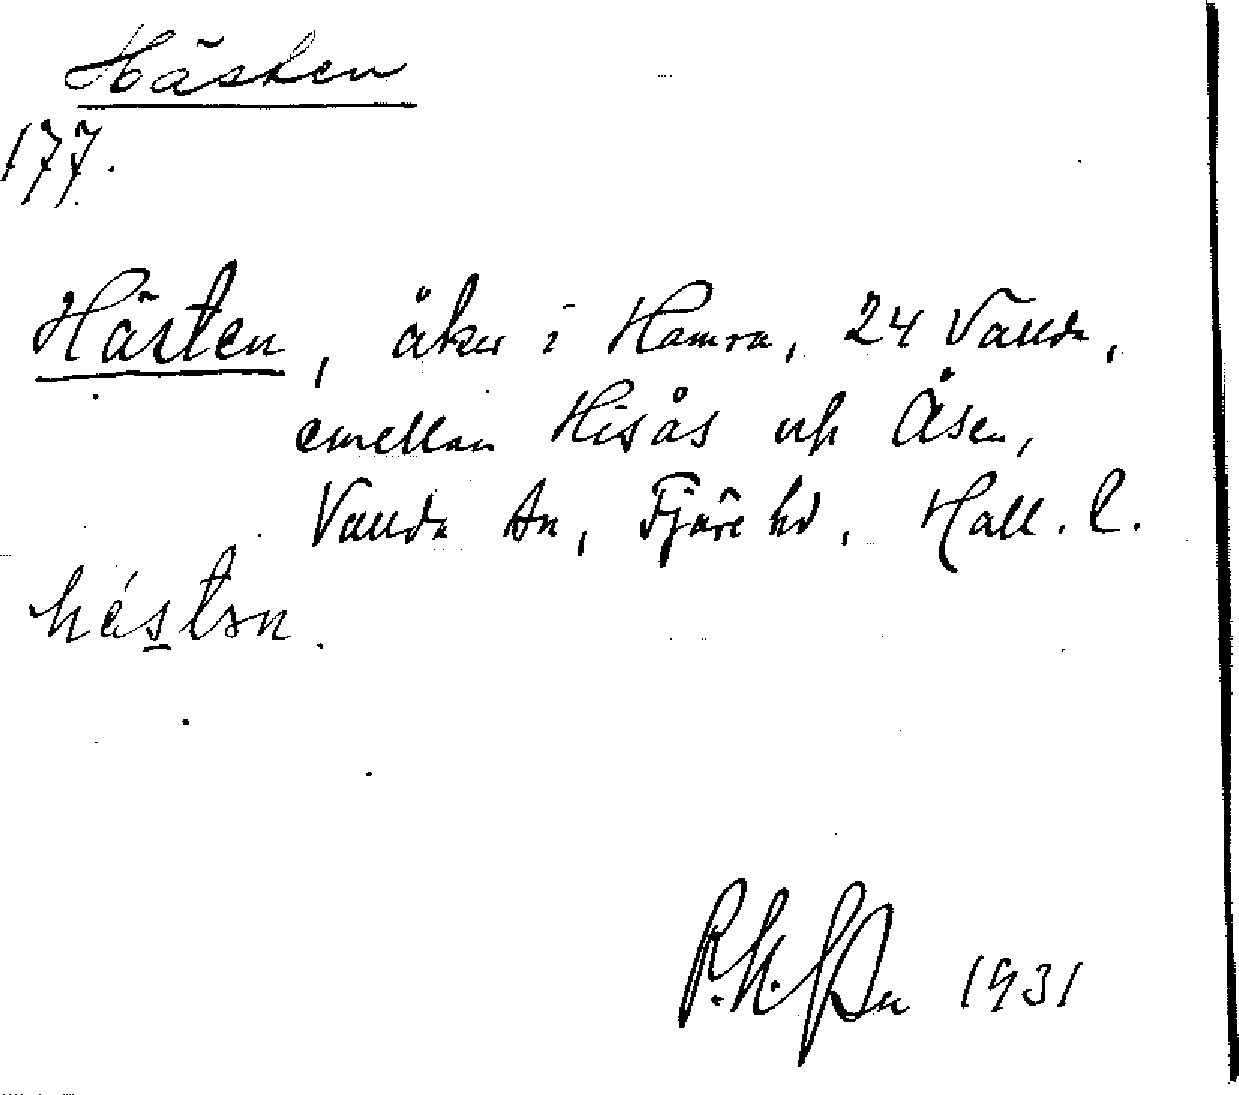 Hästen
177.
Hästen, åker i Hamra, 24 Valda,
emellan Hisås och Åsen,
Valda sn, Fjäre hd, Hall. l.
hástɘn.
1931